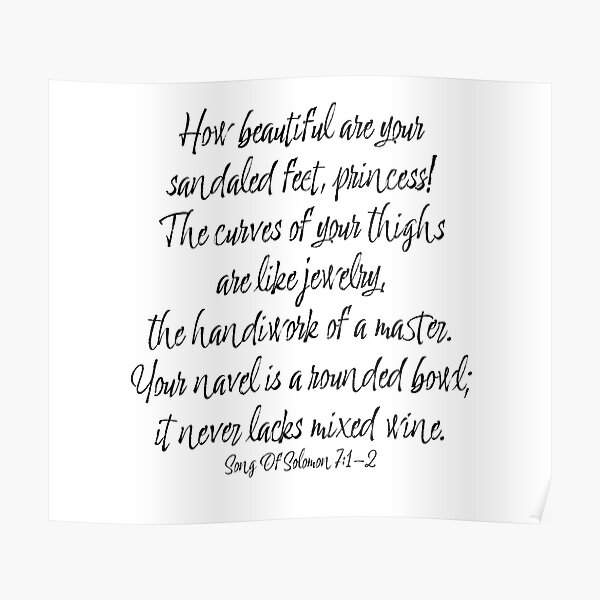 How beautiful are your
sandaled feet, princess!
The curves of your thighs
are like jewelry,
the handiwork of a master.
Your navel is a rounded bowl;
it never lacks mixed wine.
Song Of Solomon 7:1-2